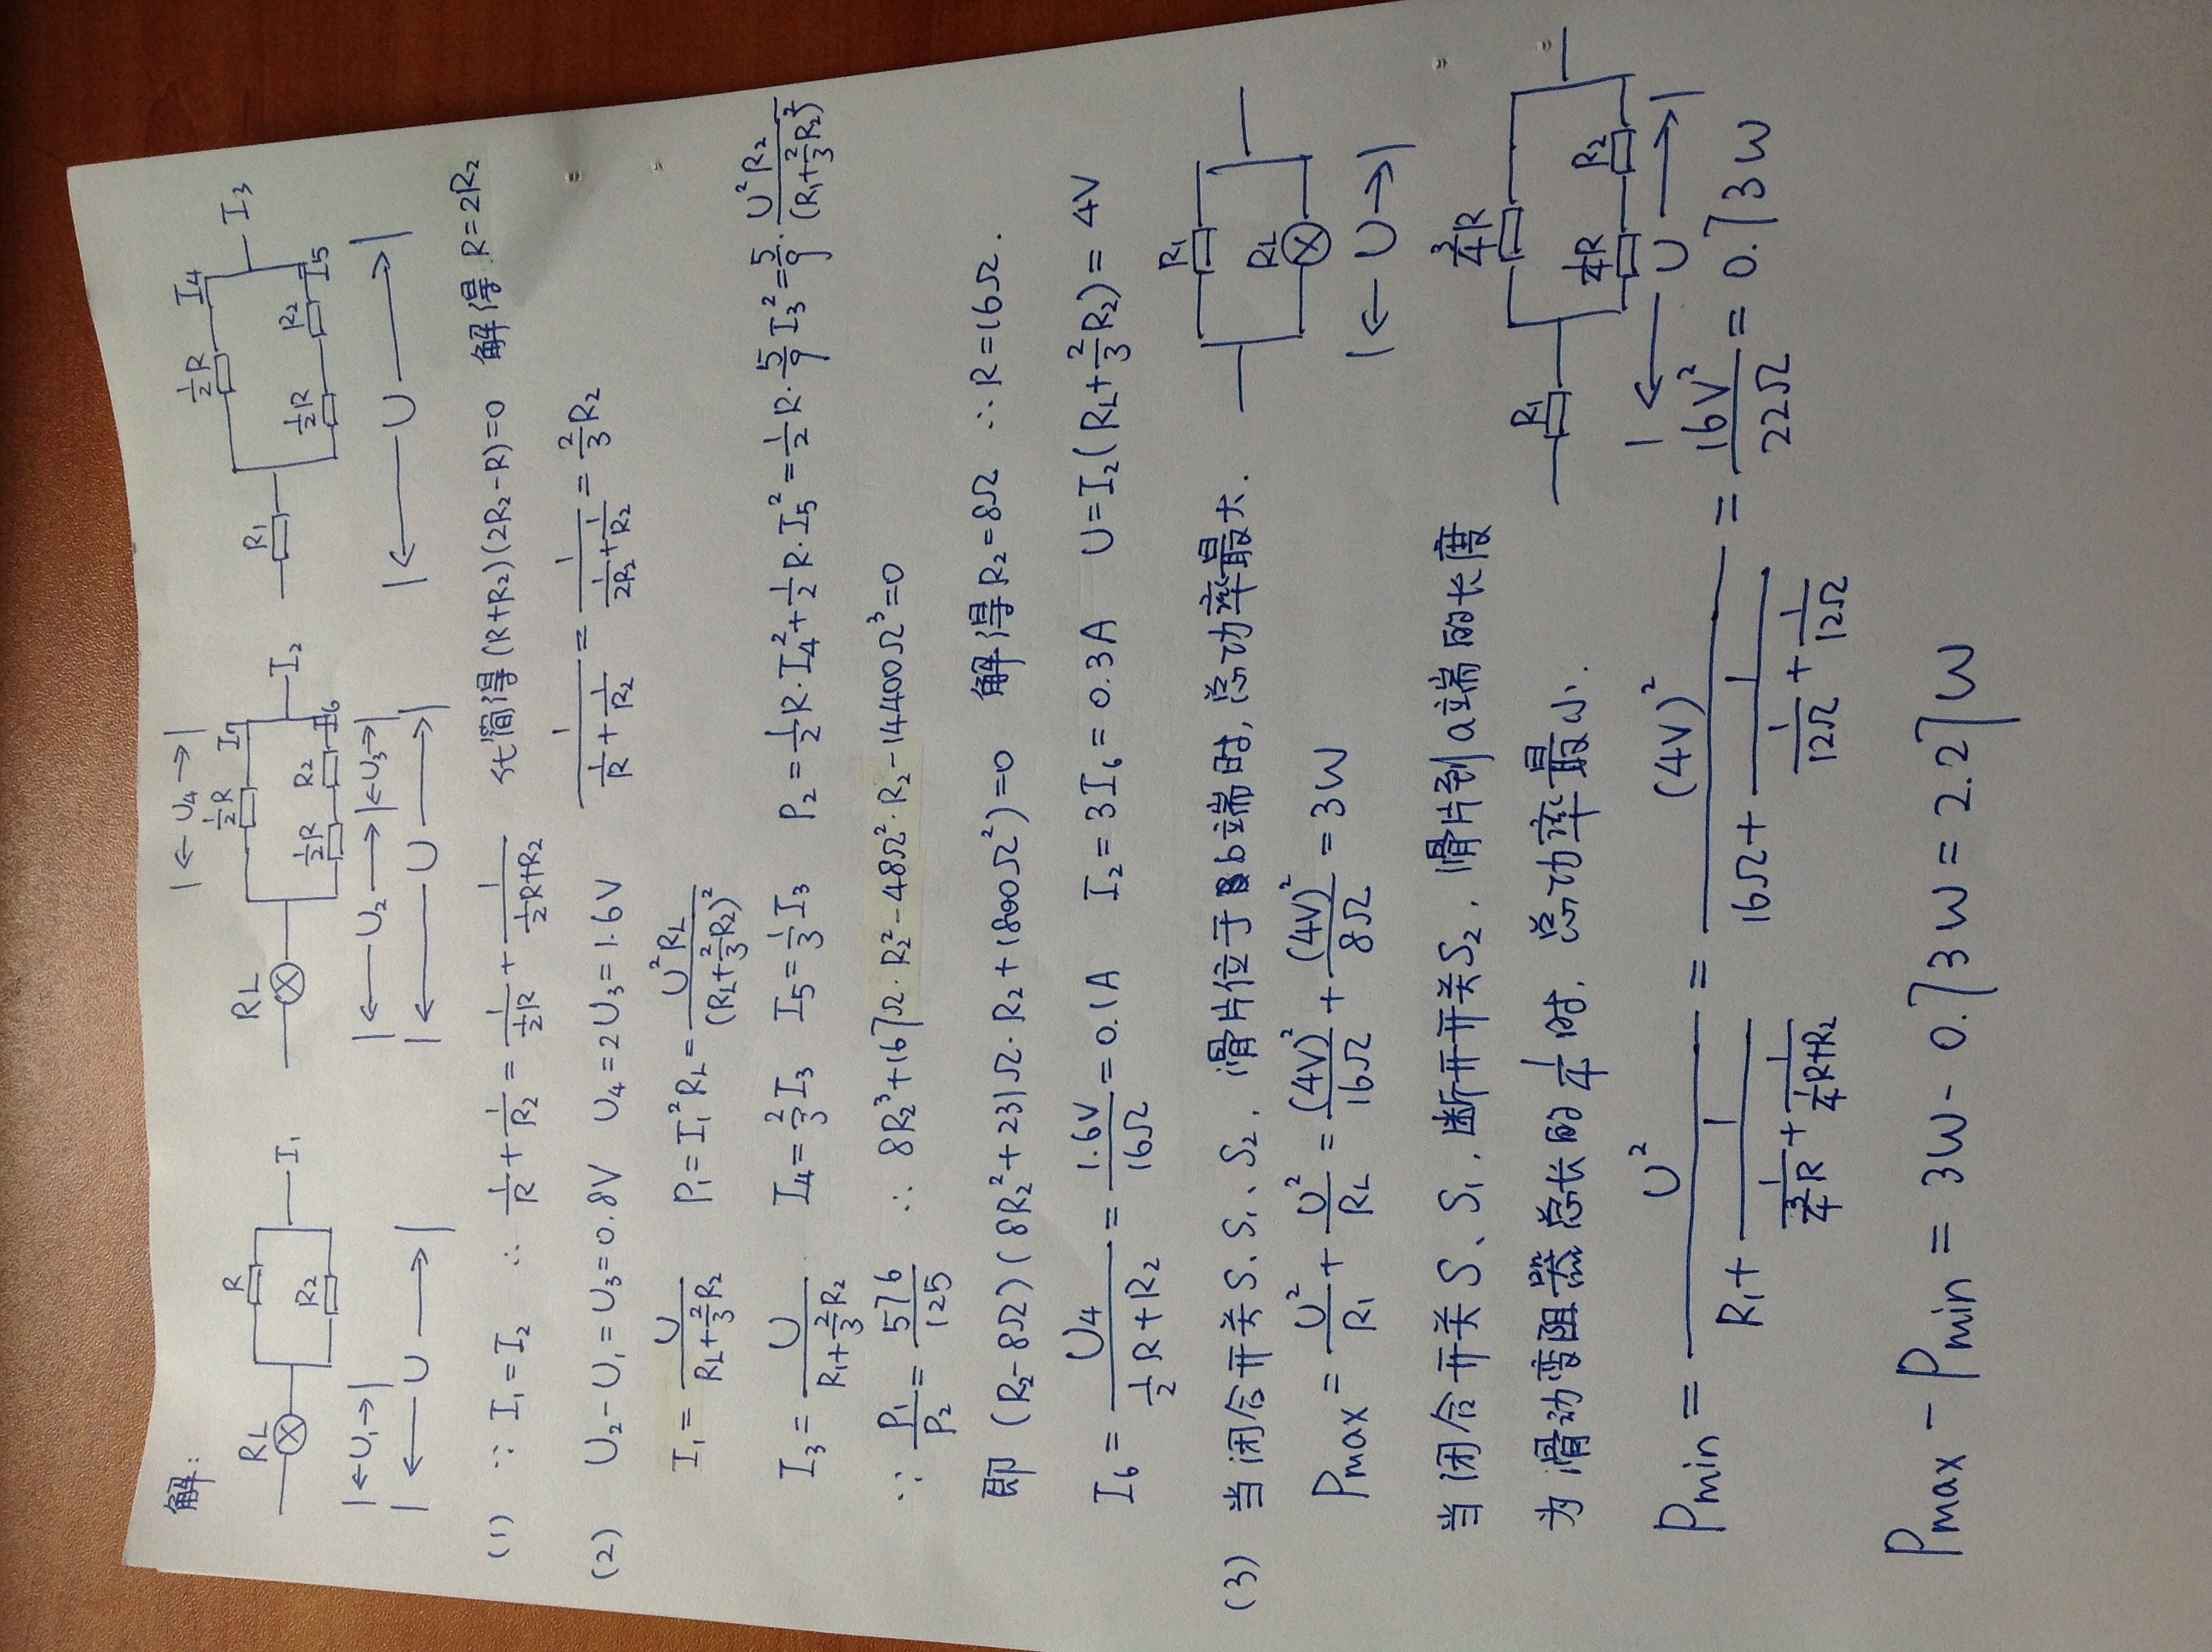 解:
|← U₄ →|
½R I₇
½R I₄
RL R I₁
RL I₂
R₁ I₃
R₂
½R R₂ I₆
½R R₂ I₅
|←U₁→|
|← U₂ →|←U₃→|
|← U →|
|← U →|
|← U →|
(1) ∵ I₁=I₂ ∴ 1/R + 1/R₂ = 1/(½R) + 1/(½R+R₂) 化简得(R+R₂)(2R₂-R)=0 解得 R=2R₂
(2) U₂-U₁=U₃=0.8V U₄=2U₃=1.6V 1/(1/R + 1/R₂) = 1/(1/2R₂ + 1/R₂) = ⅔R₂
I₁ = U/(RL+⅔R₂) P₁=I₁²RL = U²RL/(RL+⅔R₂)²
I₃ = U/(R₁+⅔R₂) I₄=⅔I₃ I₅=⅓I₃ P₂=½R·I₄²+½R·I₅²=½R·5/9 I₃²=5/9·U²R₂/(R₁+⅔R₂)²
∵ P₁/P₂ = 576/125 ∴ 8R₂³+167Ω·R₂²-48Ω²·R₂-14400Ω³=0
即 (R₂-8Ω)(8R₂²+231Ω·R₂+1800Ω²)=0 解得R₂=8Ω ∴R=16Ω.
I₆ = U₄/(½R+R₂) = 1.6V/16Ω = 0.1A I₂=3I₆=0.3A U=I₂(RL+⅔R₂)= 4V
R₁
(3) 当闭合开关S、S₁、S₂,滑片位于b端时,总功率最大.
RL
Pmax = U²/R₁ + U²/RL = (4V)²/16Ω + (4V)²/8Ω = 3W
|← U→|
当闭合开关S、S₁,断开开关S₂,滑片到a端的长度
¾R
为滑动变阻器总长的¼时,总功率最小.
R₁
¼R R₂
|← U →|
Pmin = U²/(R₁+1/(1/(¾R)+1/(¼R+R₂))) = (4V)²/(16Ω+1/(1/12Ω+1/12Ω)) = 16V²/22Ω = 0.73W
Pmax - Pmin = 3W- 0.73W = 2.27W